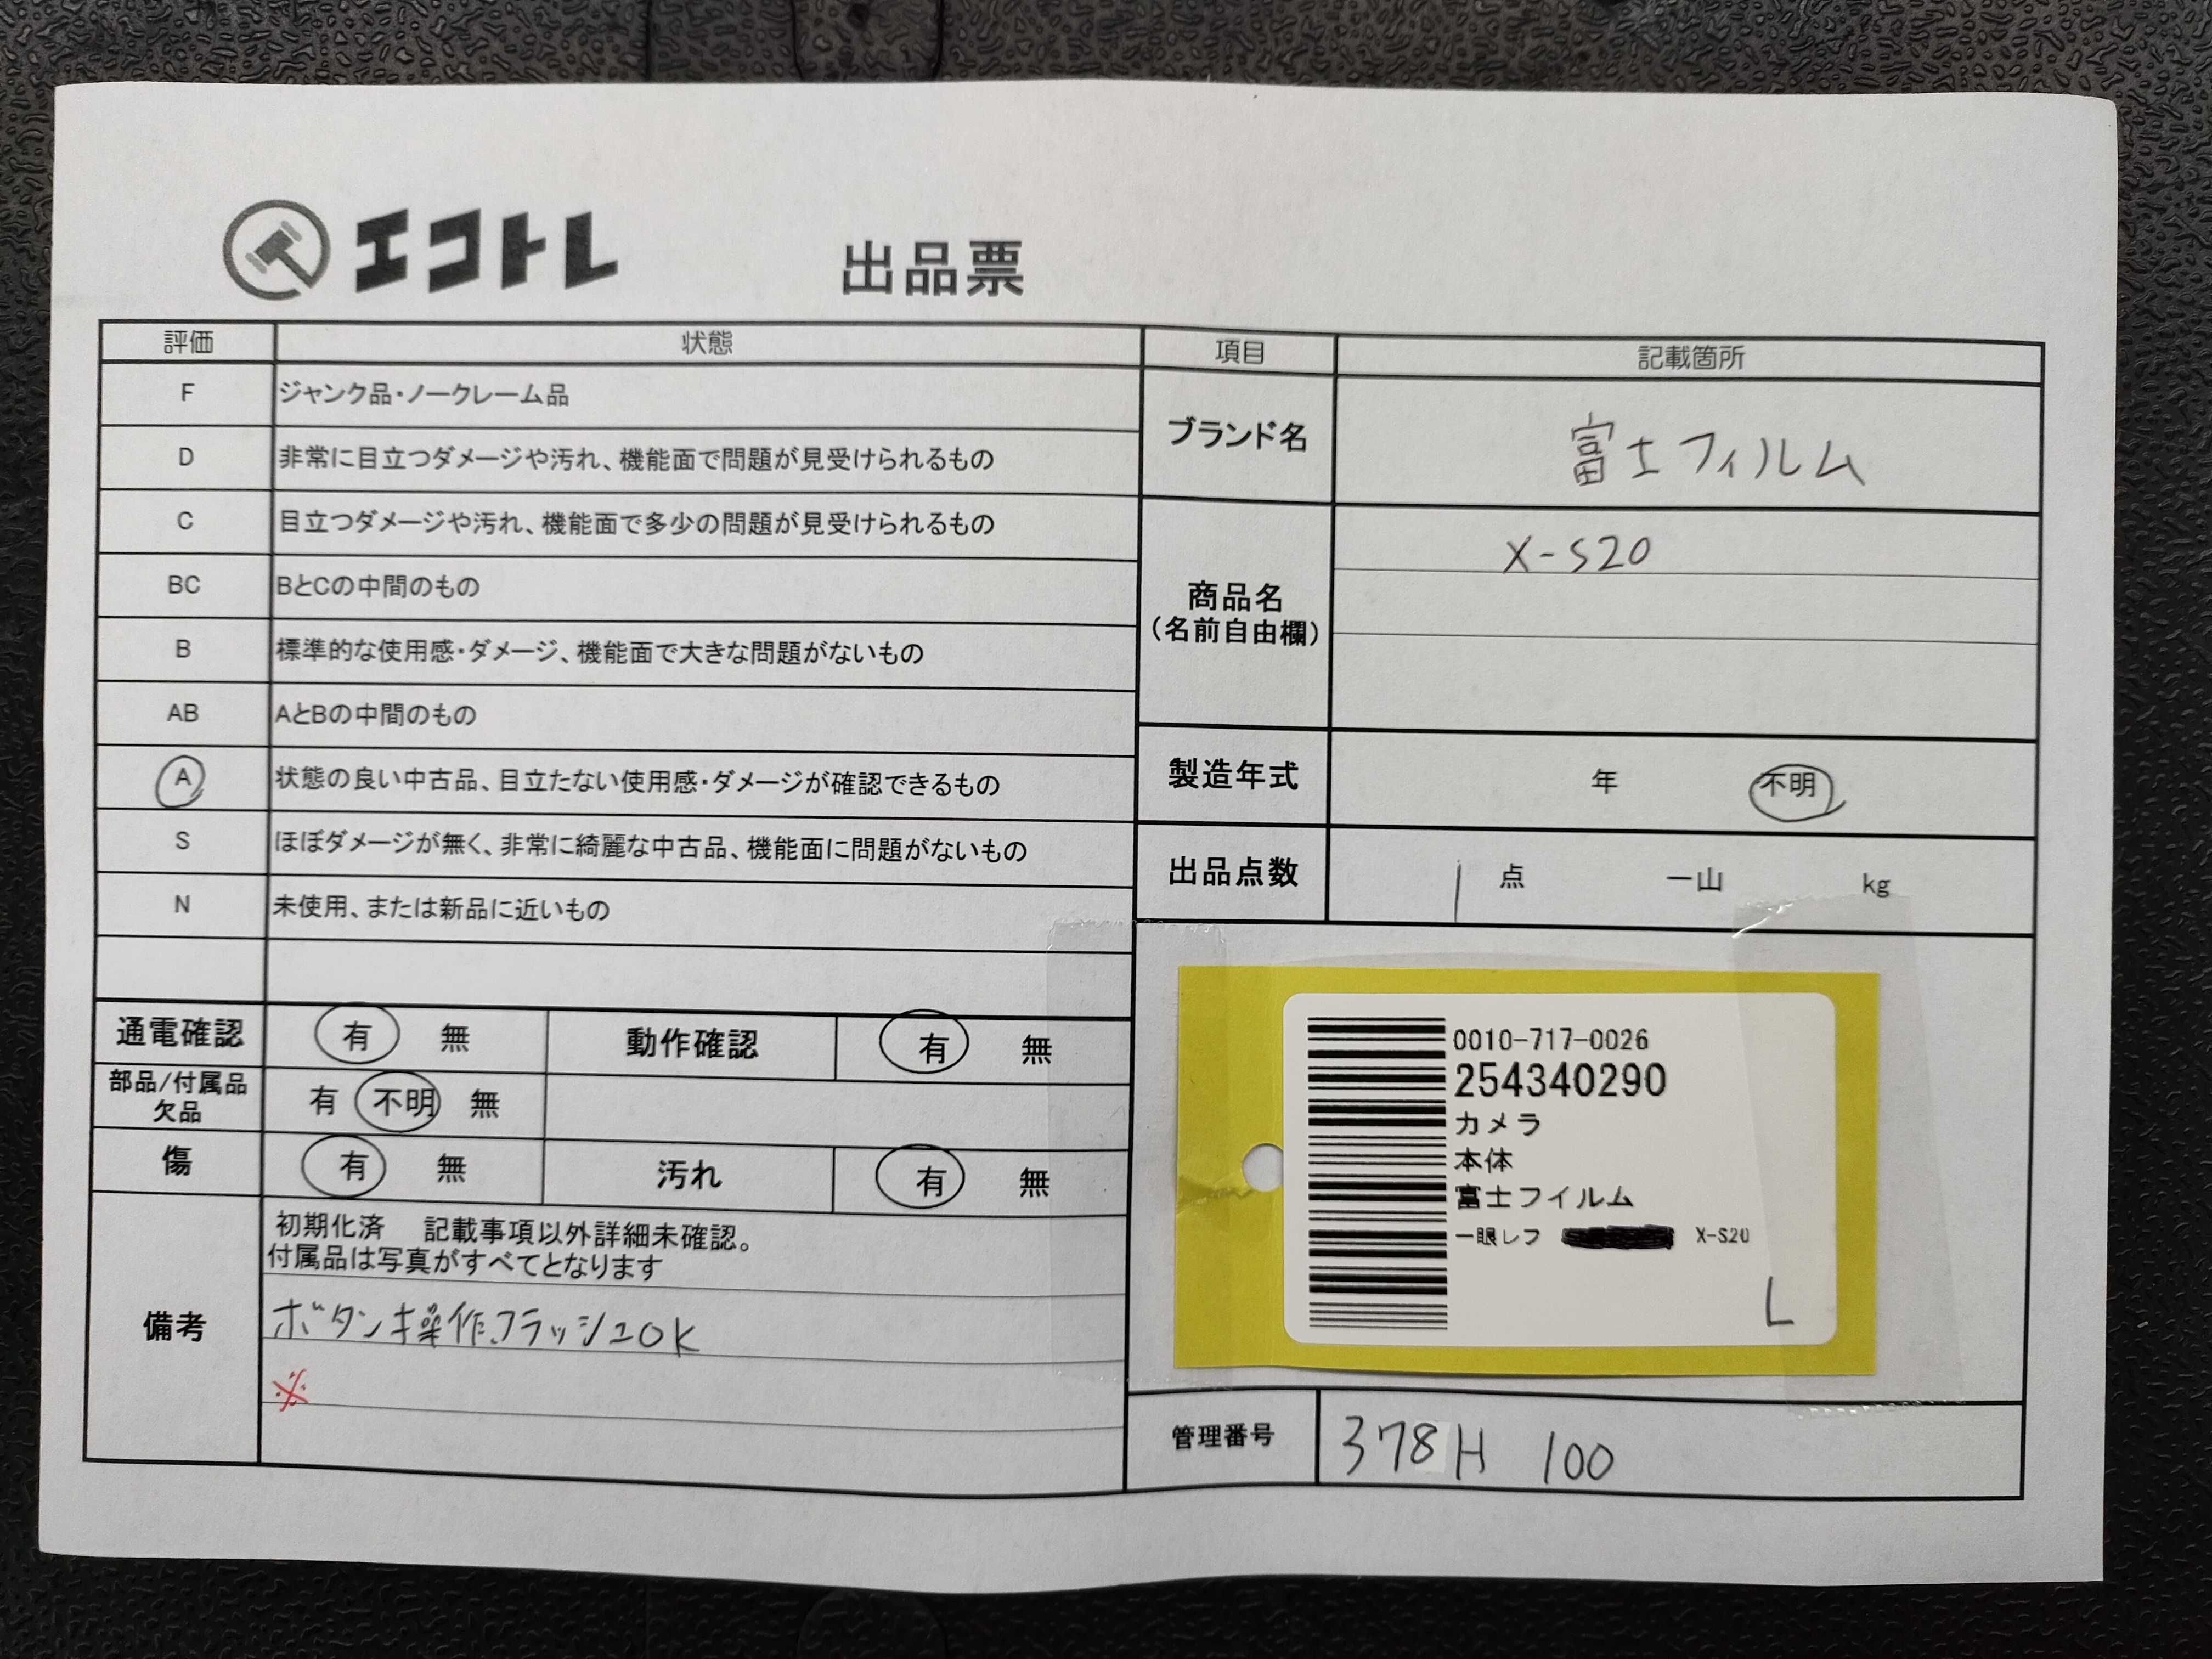 エコトレ
出品票
評価 状態
F ジャンク品・ノークレーム品
D 非常に目立つダメージや汚れ、機能面で問題が見受けられるもの
C 目立つダメージや汚れ、機能面で多少の問題が見受けられるもの
BC BとCの中間のもの
B 標準的な使用感・ダメージ、機能面で大きな問題がないもの
AB AとBの中間のもの
A 状態の良い中古品、目立たない使用感・ダメージが確認できるもの
S ほぼダメージが無く、非常に綺麗な中古品、機能面に問題がないもの
N 未使用、または新品に近いもの
通電確認 有 無 動作確認 有 無
部品/付属品
欠品 有 不明 無
傷 有 無 汚れ 有 無
備考
初期化済 記載事項以外詳細未確認。
付属品は写真がすべてとなります
ボタン操作、フラッシュOK
※
項目 記載箇所
ブランド名 富士フィルム
商品名
(名前自由欄)
X-S20
製造年式 年 不明
出品点数 1 点 一山 kg
0010-717-0026
254340290
カメラ
本体
富士フイルム
一眼レフ X-S20
L
管理番号 378H 100